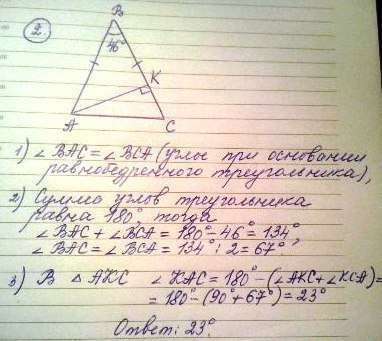 2.
B
46°
K
A
C
1) ∠BAC = ∠BCA (углы при основании
равнобедренного треугольника),
2) Сумма углов треугольника
равна 180° тогда
∠BAC + ∠BCA = 180° - 46° = 134°,
∠BAC = ∠BCA = 134° : 2 = 67°.
3) В △ AKC ∠KAC = 180° - (∠AKC + ∠KCA) =
= 180° - (90° + 67°) = 23°
Ответ: 23°